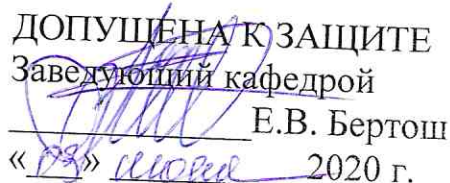 ДОПУЩЕНА К ЗАЩИТЕ
Заведующий кафедрой
Е.В. Бертош
«03» июня 2020 г.